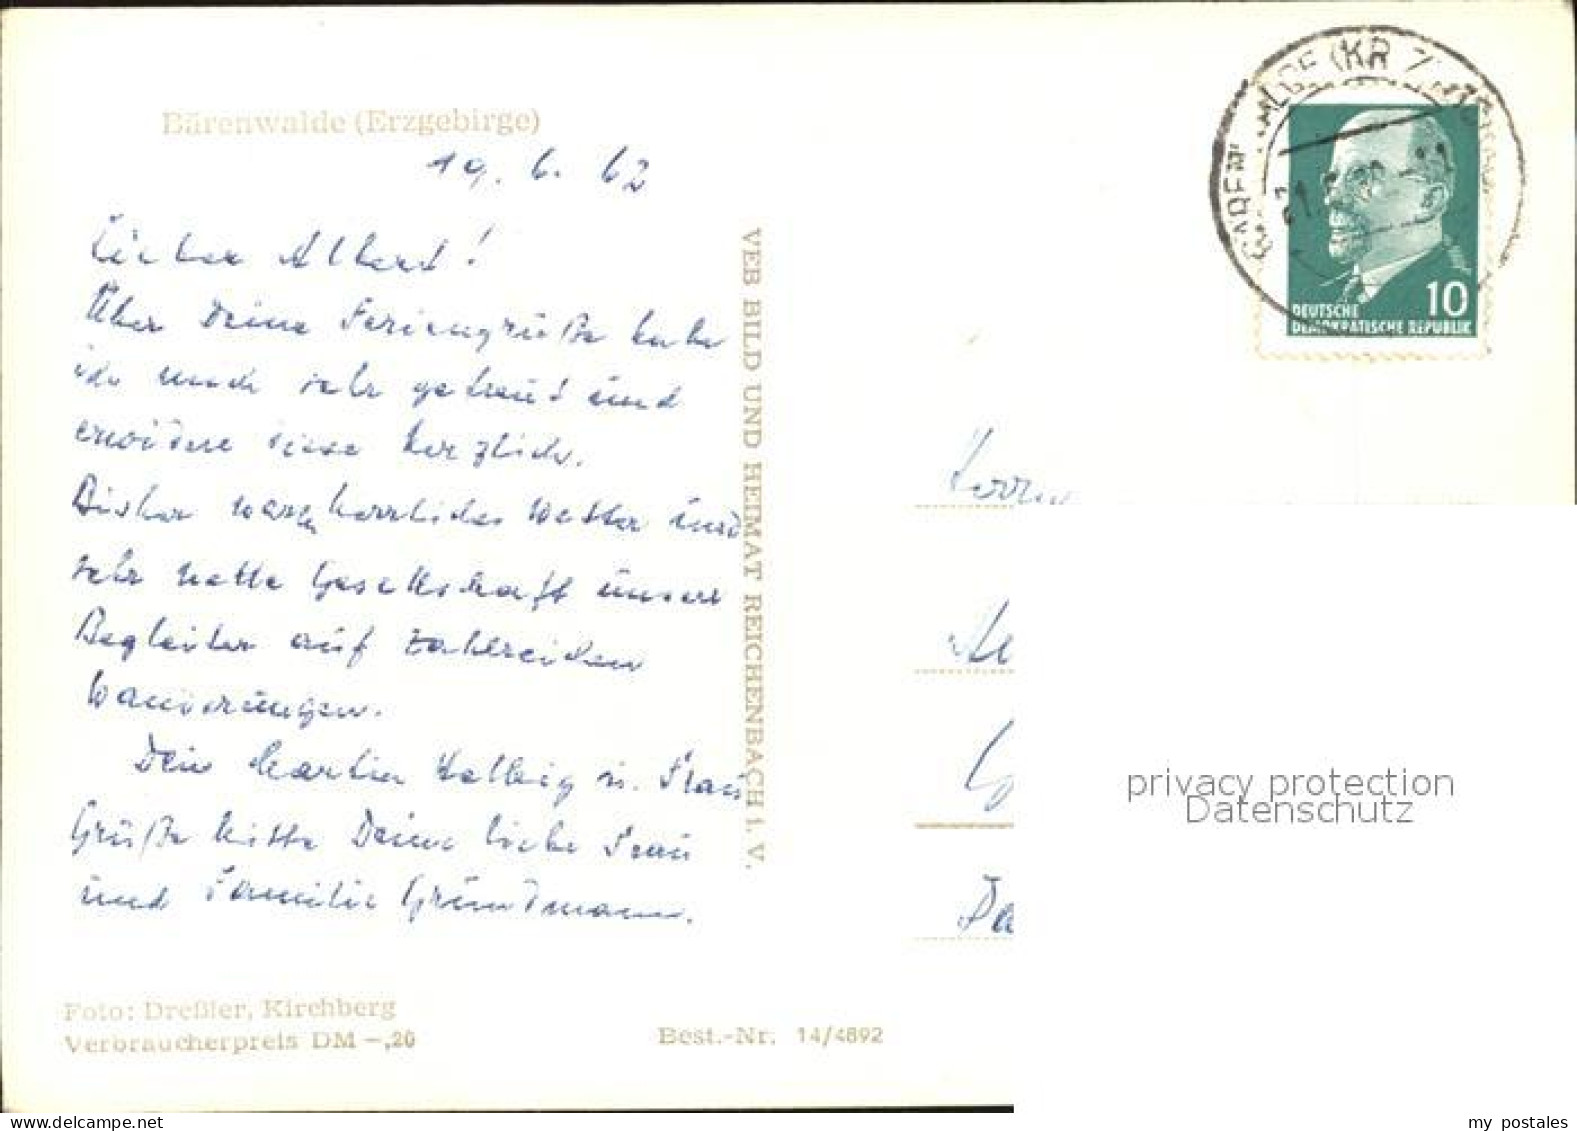 Bärenwalde (Erzgebirge)
19. 6. 62
Lieber Albert!
Über Deine Feriengrüße habe
ich mich sehr gefreut und
erwidere diese herzlich.
Bisher war herrliches Wetter und
sehr nette Gesellschaft unsere
Begleiter auf zahlreichen
Wanderungen.
Dein Martin Helbig u. Frau
Grüße bitte Deine liebe Frau
und Familie Gründmann.
Foto: Dreßler, Kirchberg
Verbraucherpreis DM -,20
Best.-Nr. 14/4892
VEB BILD UND HEIMAT REICHENBACH i. V.
(KR
10
DEUTSCHE
DEMOKRATISCHE REPUBLIK
Herrn
privacy protection
Datenschutz
www.delcampe.net
my postales